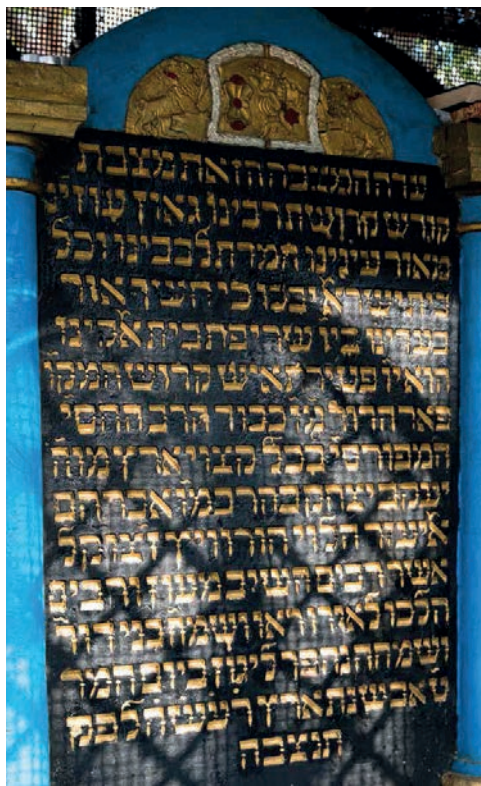 עדה המצבה הזאת מצבת
קודש קדושת רבינו גאון עוזי
מאור עינינו חמדת לבבינו וכל
בית ישראל יבכו כי חשך אור
ביו שריפת בית אלקינו
הוא יו פטירת איש קדוש המקו
פאר הדור גזע כבוד הרב החסי
המפורס בכל קצוי ארץ מוה
יעקב יצחק בהרב כמו אברהם
הלוי הורוויץ זצוקל
אשר רבים השיב מעון ורבים
הלכו לאורו ראו ושמחו בני דורו
ושמחה נהפך ליגון
ט אב שנת ארץ רעשה לפק
תנצבה